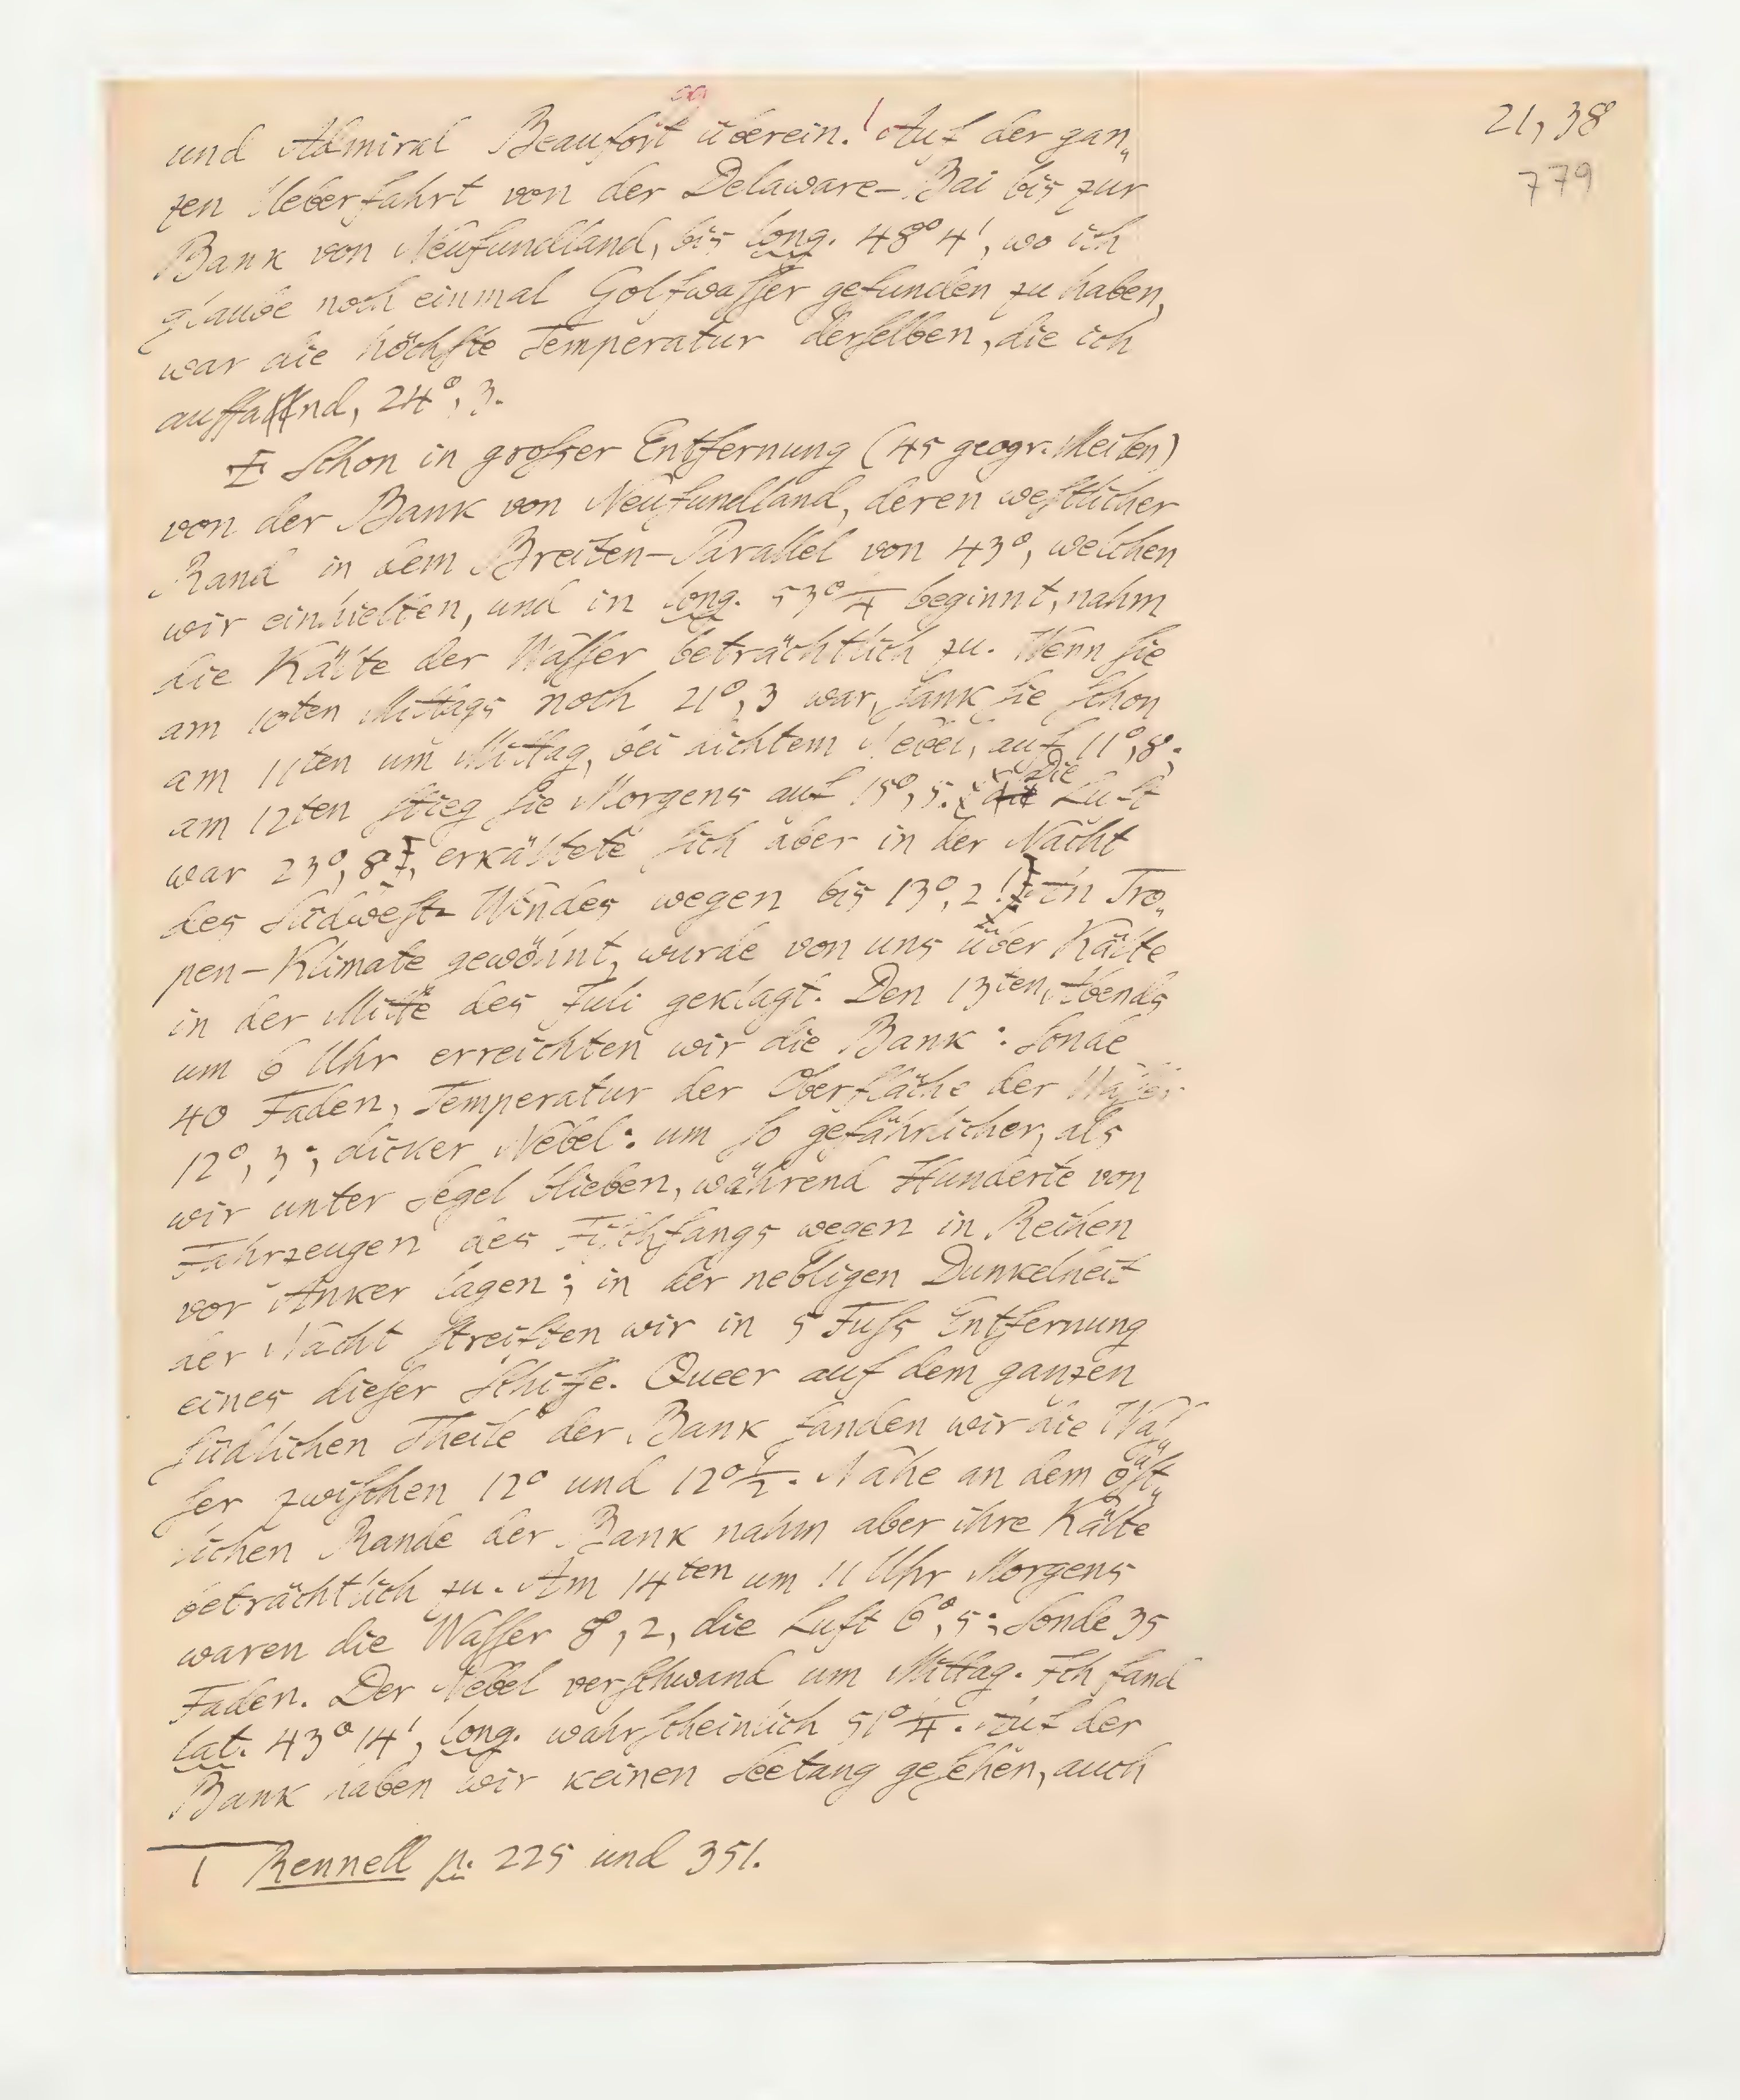 21, 38
779
und Admiral Beaufort überein.¹ Auf der gan„
zen Ueberfahrt von der Delaware-Bai bis zur
Bank von Neufundland, bis long. 48° 4', wo ich
glaube noch einmal Golfwasser gefunden zu haben,
war die höchste Temperatur derselben, die ich
auffand, 24°, 3.
Schon in großer Entfernung (45 geogr. Meilen)
von der Bank von Neufundland, deren westlicher
Rand in dem Breiten-Parallel von 43°, welchen
wir einhielten, und in long. 53° 1/4 beginnt, nahm
die Kälte der Wasser beträchtlich zu. Wenn sie
am 10ten Mittags noch 21°, 3 war, sank sie schon
am 11ten um Mittag, bei dichtem Nebel, auf 11°, 8;
am 12ten stieg sie Morgens auf 15°, 5. Die Luft
war 23°, 8, erkältete sich aber in der Nacht
des Südwest-Windes wegen bis 13°, 2! An Tro„
pen-Klimate gewöhnt, wurde von uns über Kälte
in der Mitte des Juli geklagt. Den 13ten Abends
um 6 Uhr erreichten wir die Bank: Sonde
40 Faden, Temperatur der Oberfläche der Wasser
12°, 3; dicker Nebel: um so gefährlicher, als
wir unter Segel blieben, während Hunderte von
Fahrzeugen des Fischfangs wegen in Reihen
vor Anker lagen; in der nebligen Dunkelheit
der Nacht streiften wir in 5 Fuß Entfernung
eines dieser Schiffe. Queer auf dem ganzen
südlichen Theile der Bank fanden wir die Was„
ser zwischen 12° und 12° 1/2. Nahe an dem öst„
lichen Rande der Bank nahm aber ihre Kälte
beträchtlich zu. Am 14ten um 11 Uhr Morgens
waren die Wasser 8°, 2, die Luft 6°, 5; Sonde 35
Faden. Der Nebel verschwand um Mittag. Ich fand
lat. 43° 14', long. wahrscheinlich 51° 1/4. Auf der
Bank haben wir keinen Seetang gesehen, auch
1 Rennell p. 225 und 351.